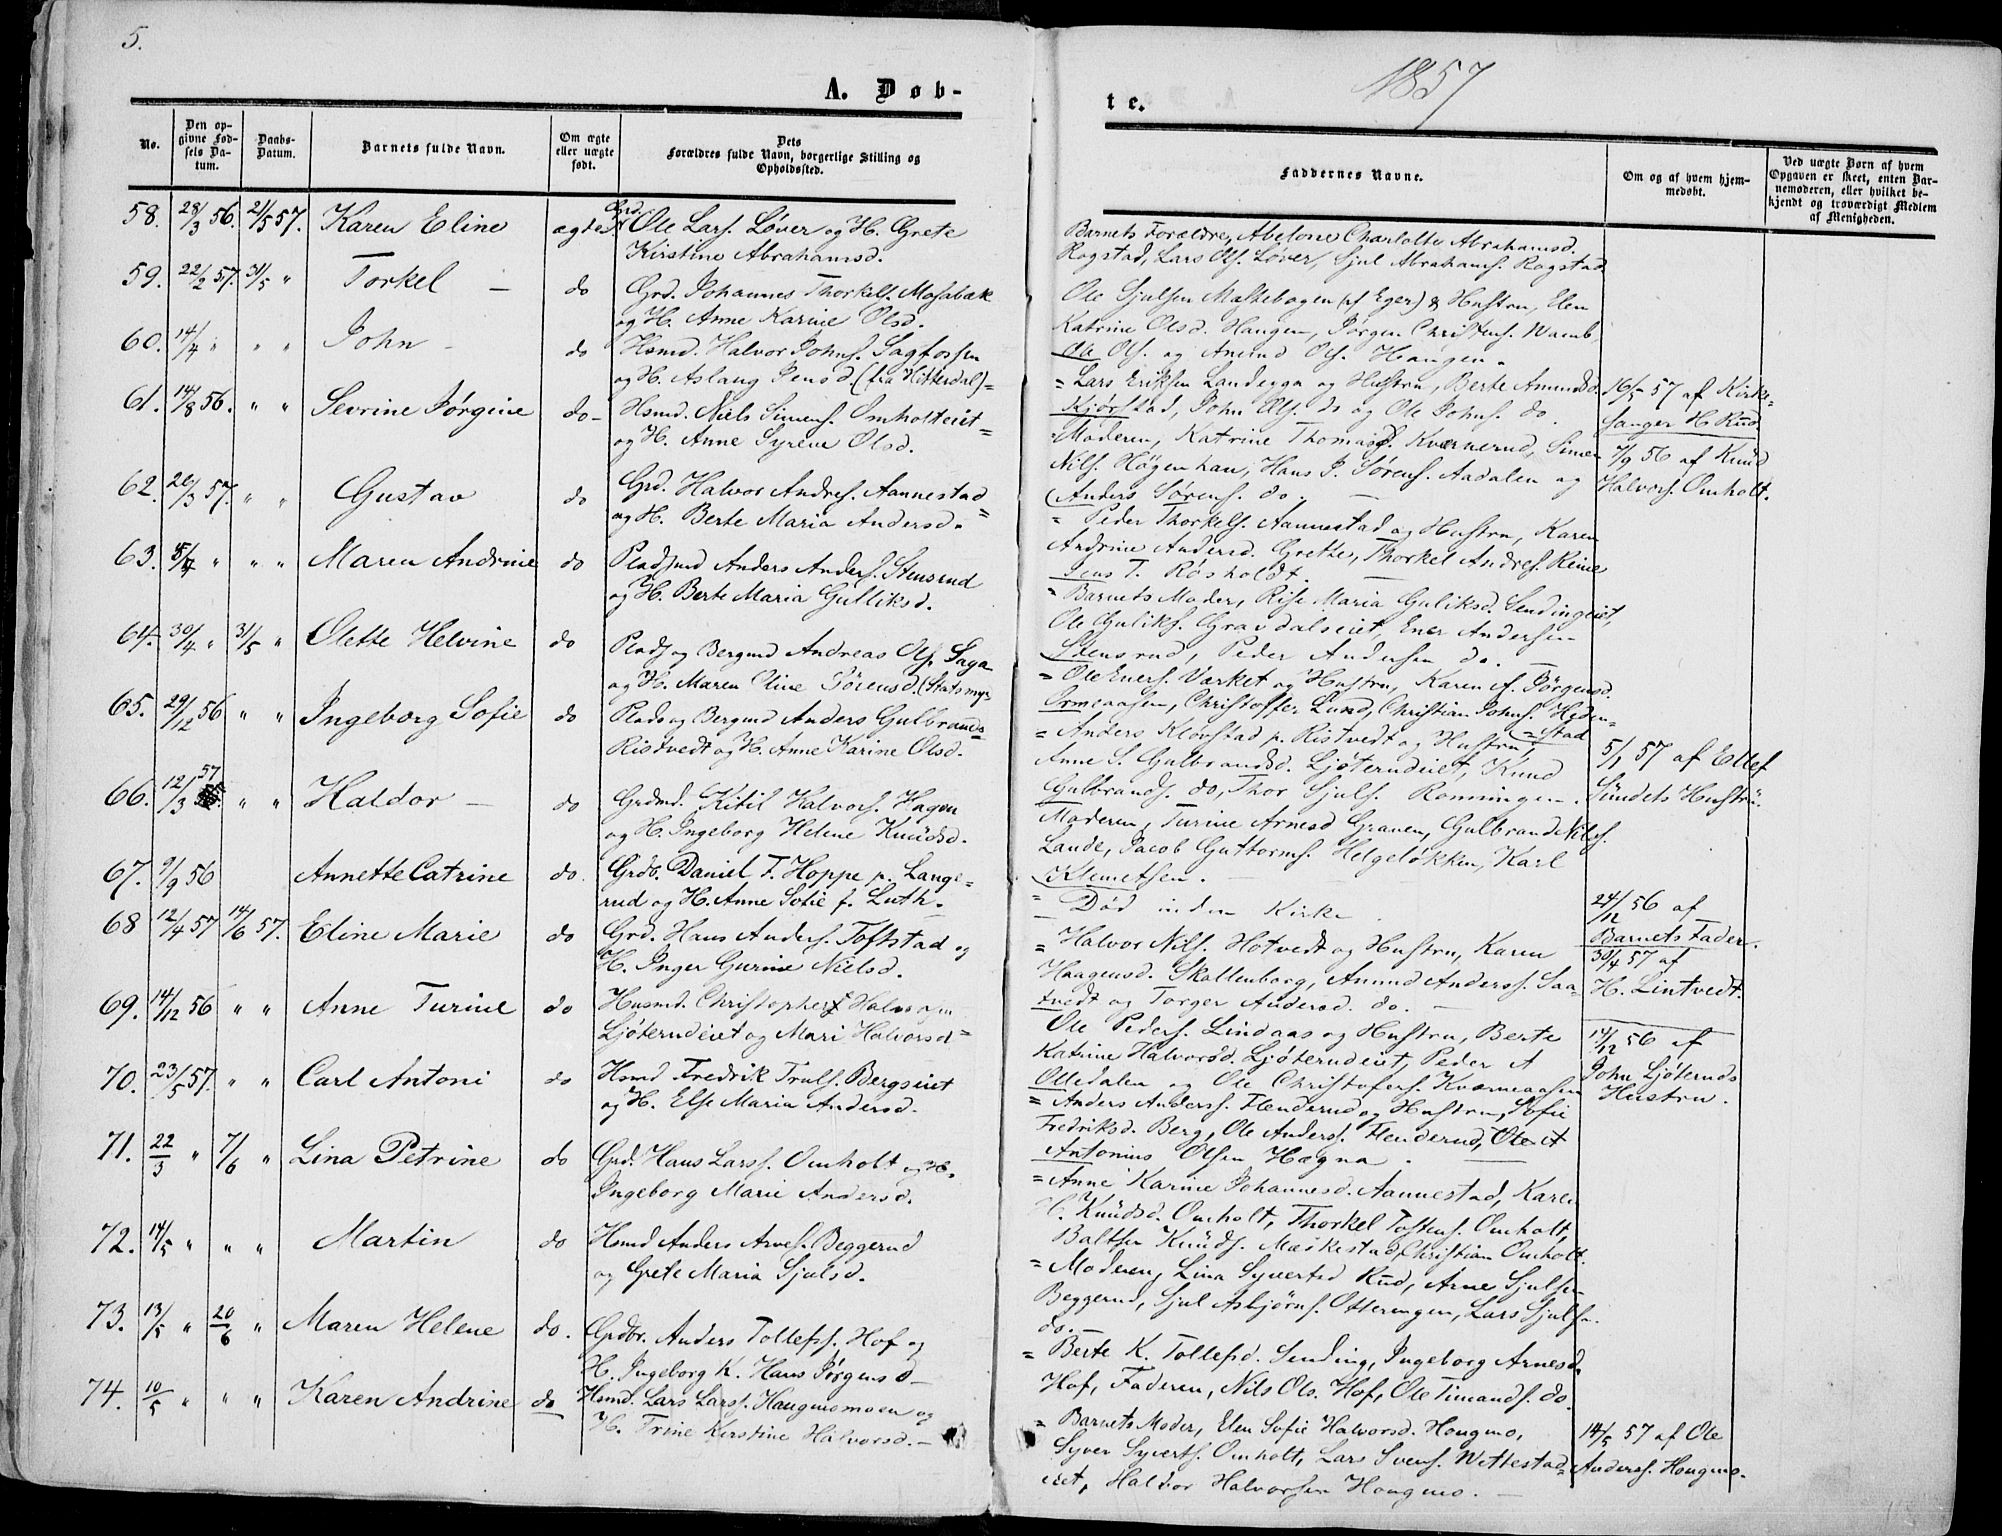 5.
A. Døb-
No.
Den op-
givne Fød-
sels Da-
tum.
Daabs-
Datum.
Barnets fulde Navn.
Om ægte
eller uægte
født.
Dets
Forældres fulde Navn, borgerlige Stilling og
Opholdssted.
58. 28/3 56. 21/5 57. Karen Eline ægte Grd. Ole Lars. Løver og H. Grete
Kirstine Abrahamsd.
59. 22/2 57. 31/5 " Torkel - do Grd. Johannes Thorkels. Mosabæk
og H. Anne Karine Olsd.
60. 14/4 " " " John - do Hsmd. Halvor Johns. Sagfossen
og H. Aslaug Jensd. (fra Hitterdal)=
61. 14/8 56. " " Sevrine Jørgine do- Hsmd. Niels Simens. Omholteiet=
og H. Anne Syrene Olsd.
62. 20/3 57. " " Gustav do Grd. Halvor Andres. Aannestad=
og H. Berte Maria Andersd.
63. 5/4 " " " Maren Andrine do Pladsmd Anders Anders. Stensrud
og H. Berte Maria Gulliksd.
64. 30/4 " 31/5 " Olette Helvine do Plads og Bergmd Andreas Ols. Saga
og H. Maren Eline Sörensd. (Statsmyr
65. 29/12 56 " " Ingeborg Sofie do Plads og Bergmd Anders Gulbrands=
Ristvedt og H. Anne Karine Olsd.
66. 12/3 57 " " Haldor - do Grdmd. Kitil Halvors. Hagen
og H. Ingeborg Helene Knudsd.
67. 9/9 56 Annette Catrine do. Grdb. Daniel F. Hoppe p. Lange=
rud og H. Anne Sofie f. Luth.
68 12/4 57 14/6 57. Eline Marie do Grd. Hans Anders. Toftstad og
H. Inger Gurine Nielsd.
69. 14/12 56 " " Anne Turine do Husmd. Christopher Halvorsen
Ljøterudeiet og Mari Halvorsd=
70. 23/5 57. " " Carl Antoni do Hsmd Fredrik Truls. Bergseiet
og H. Else Maria Andersd.
71. 22/3 " 7/6 " Lina Petrine do Grd. Hans Larss. Omholt og H.
Ingeborg Marie Andersd.
72. 14/5 " " " Martin do Hsmd Anders Arves. Beggerud
og Grete Maria Sjulsd.
73. 13/5 " 20/6 " Maren Helene do. Grdbr. Anders Tollefss. Hof og
H. Ingeborg K. Hans Jørgensd-
74. 10/5 " " " Karen Andrine do Hsmd. Lars Larss. Haugmomoen og
H. Trine Kirstine Halvorsd. -
te.
1857
Faddernes Navne.
Om og af hvem hjem-
medøbt.
Ved uægte Børn af hvem
Opgaven er skeet, enten Bar-
nemoderen, eller hvilket be-
kjendt og troværdigt Medlem
af Menigheden.
Barnets Forældre, Abelone Charlotte Abrahamsd.
Rogstad, Lars Ols. Løver, Sjul Abrahams. Rogstad
Ole Sjulsen Maskebogen (af Eger) & Hustru, Elen
Katrine Olsd. Haugen, Jørgen Christens. Wamb
Ole Ols. og Amund Ols. Haugen.
= Lars Eriksen Landegga og Hustru, Berte Amundsd.
Kjørstad, John Ols. do og Ole Johns. do.
16/5 57 af Kirke-
sanger H. Rud
= Moderen, Katrine Thomasd. Kværnerud, Simen
Nils. Högenhau, Hans J. Sørens. Aadalen og
Anders Sørens. do. -
7/9 56 af Knud
Halvors. Omholt.
= Peder Thorkels. Aannestad og Hustru, Karen
Andrine Andersd. Grette, Thorkel Andres. Reine
Jens T. Rösholdt. -
= Barnets Moder, Rise Maria Guliksd. Sendingeiet,
Ole Guliks. Gravdalseiet, Ener Andersen
Stensrud, Peder Andersen do. -
= Ole Eners. Værket og Hustru, Karen A. Jörgensd.
Ormeaasen, Christoffer Lund, Christian Johns. Heden=
=stad
= Anders Klovstad p. Ristvedt og Hustru,
Anne S. Gulbrandsd. Ljøterudeiet, Knud
Gulbrands. do, Thor Sjuls. Ronningen.
5/1 57 af Ellef
Sundets Hustru.
Moderen, Turine Arnesd Graven, Gulbrand Nils.
Lande, Jacob Guttorms. Helgeløkken, Karl
Klemetsen. -
= Død inden Kirke
24/12 56 af
Barnets Fader.
= Halvor Nils. Hotvedt og Hustru, Karen
Haagensd. Skallenborg, Amund Anderss. Saa=
tvedt og Torger Andersd. do. -
30/4 57 af
H. Lintvedt.
Ole Peders. Lindaas og Hustru, Berte
Katrine Halvorsd. Ljøterudeiet, Peder A
Olledalen og Ole Christofers. Kværneaasen
17/12 56 af
John Ljøteruds
Hustru.
= Anders Anderss. Flenderud og Hustru, Sofie
Fredriksd. Berg, Ole Anderss. Flenderud, Ole A
Antonius Olsen Hægna. -
= Anne Karine Johannesd. Aannestad, Karen
H. Knudsd. Omholt, Thorkel Tostens. Omholt,
Baltser Knuds. Mæikestad, Christian Omholt.
= Moderen, Lina Syvertsd Rud, Arne Sjulsen
Beggerud, Sjul Asbjørns. Otteringen, Lars Sjuls.
do. -
= Berte K. Tollefsd. Sending, Ingeborg Arnesd.
Hof, Faderen, Nils Ols. Hof, Ole Timands. do.
= Barnets Moder, Elen Sofie Halvorsd. Hougmo,
Syver Syverts. Omholt, Lars Svens. Wettestad=
eiet, Haldor Halvorsen Hougmo. -
14/5 57 af Ole
Anderss. Hougmo.